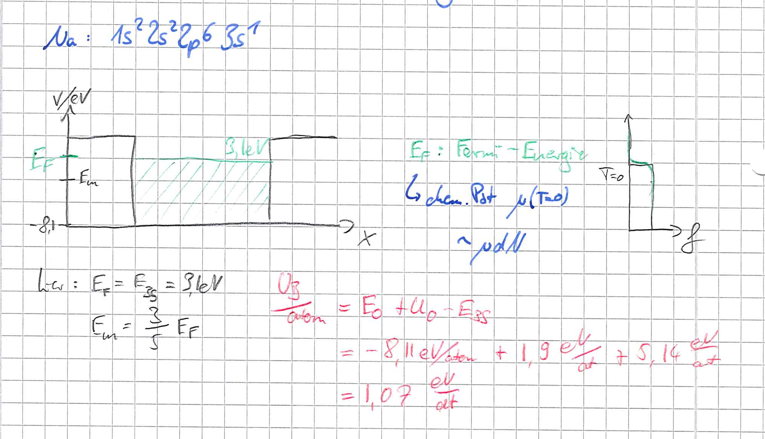 Na: 1s² 2s² 2p⁶ 3s¹
V/eV
E_F
3,1eV
E_m
-8,1
x
E_F: Fermi-Energie
↳ chem. Pot μ(T=0)
~ μdN
T=0
f
hier: E_F = E_3s = 3,1eV
E_m = 3/5 E_F
U_B/atom = E_0 + U_0 - E_3s
= -8,11 eV/atom + 1,9 eV/at + 5,14 eV/at
= 1,07 eV/at